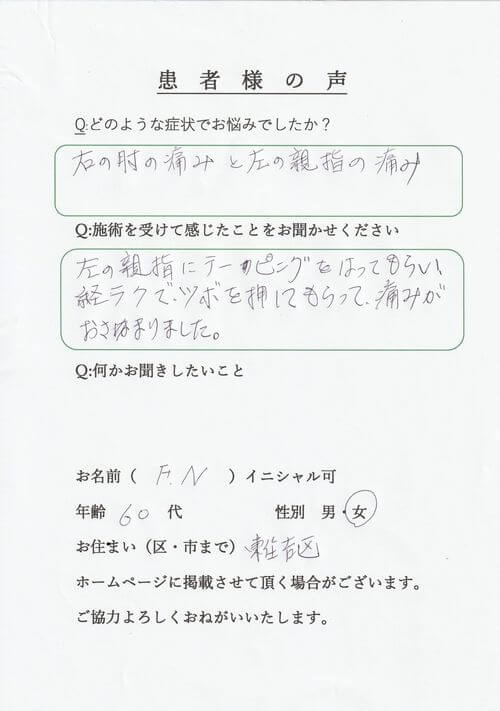 患者様の声
Q:どのような症状でお悩みでしたか？
右の肘の痛みと左の親指の痛み
Q:施術を受けて感じたことをお聞かせください
左の親指にテーピングをはってもらい、
経ラクで、ツボを押してもらって、痛みが
おさまりました。
Q:何かお聞きしたいこと
お名前（ F.N ）イニシャル可
年齢 60 代 性別 男・女
お住まい（区・市まで）東住吉区
ホームページに掲載させて頂く場合がございます。
ご協力よろしくおねがいいたします。